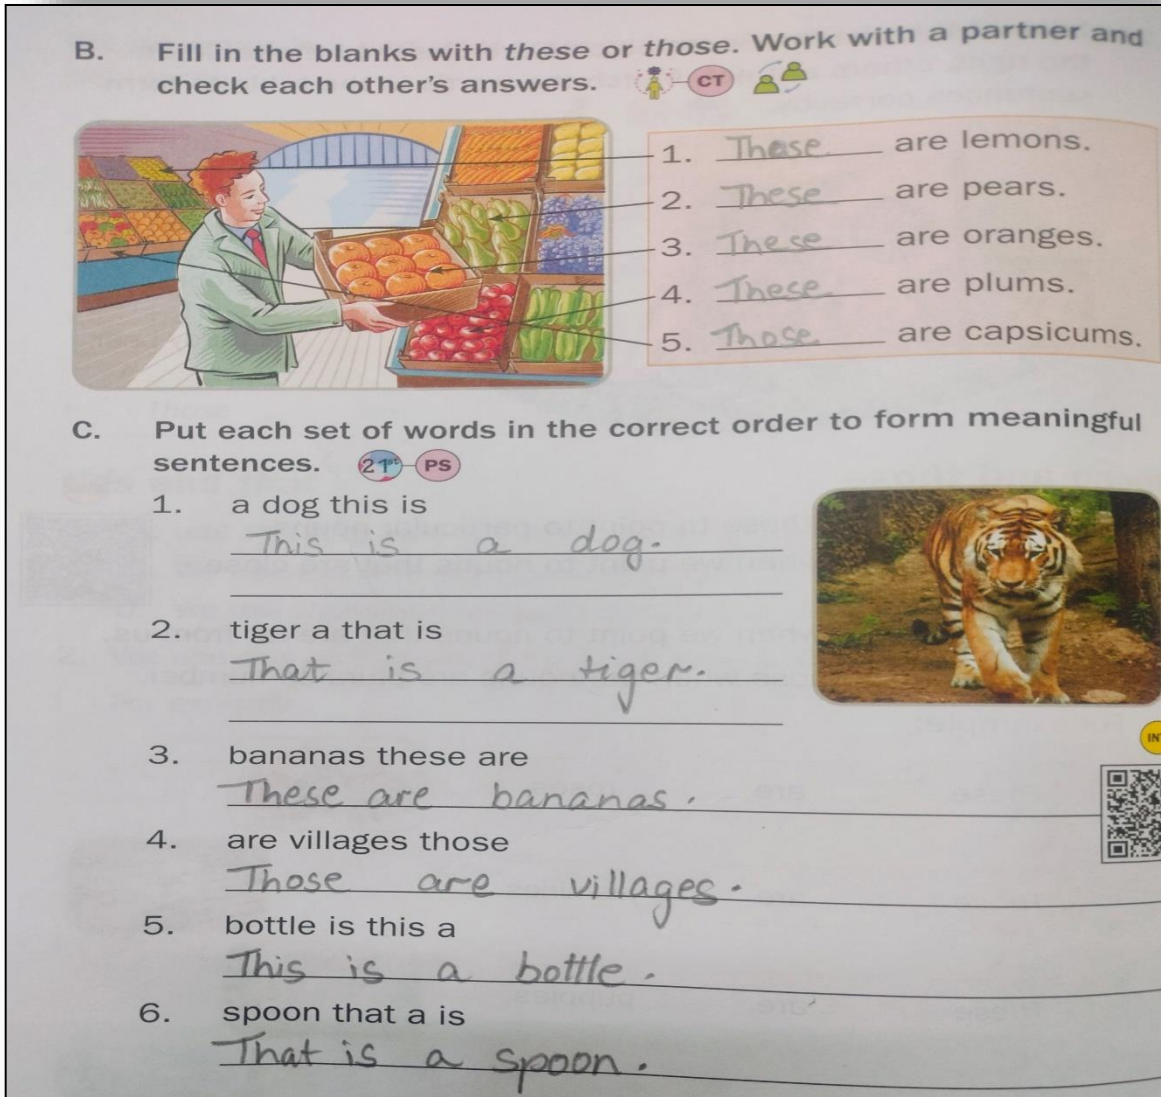 B. Fill in the blanks with these or those. Work with a partner and
check each other's answers. CT
1. Those are lemons.
2. These are pears.
3. These are oranges.
4. These are plums.
5. Those are capsicums.
C. Put each set of words in the correct order to form meaningful
sentences. 21st PS
1. a dog this is
This is a dog.
2. tiger a that is
That is a tiger.
3. bananas these are
These are bananas.
4. are villages those
Those are villages.
5. bottle is this a
This is a bottle.
6. spoon that a is
That is a spoon.